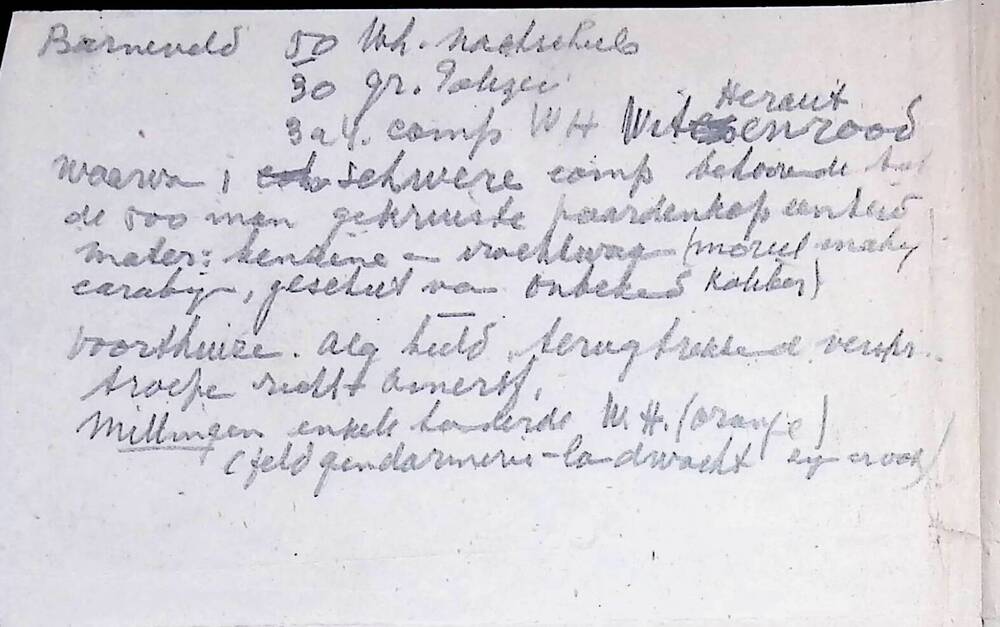 Barneveld 50 Wh. nachschub
30 gr. Polizei
Heraut
3 a 4. comp WH Wit en rood
waarva 1 schwere comp behoorende tot
de 500 man gekruiste paardenkop eenheid
mater: benzine - vrachtwag (
carabijn, geschut van onbekend kaliber)
Voorthuize. Alg beeld, terugtrekkende verspr..
troepe richt Amersf.
Millingen enkele honderde W.H. (oranje)
(feldgendarmerie - landwacht